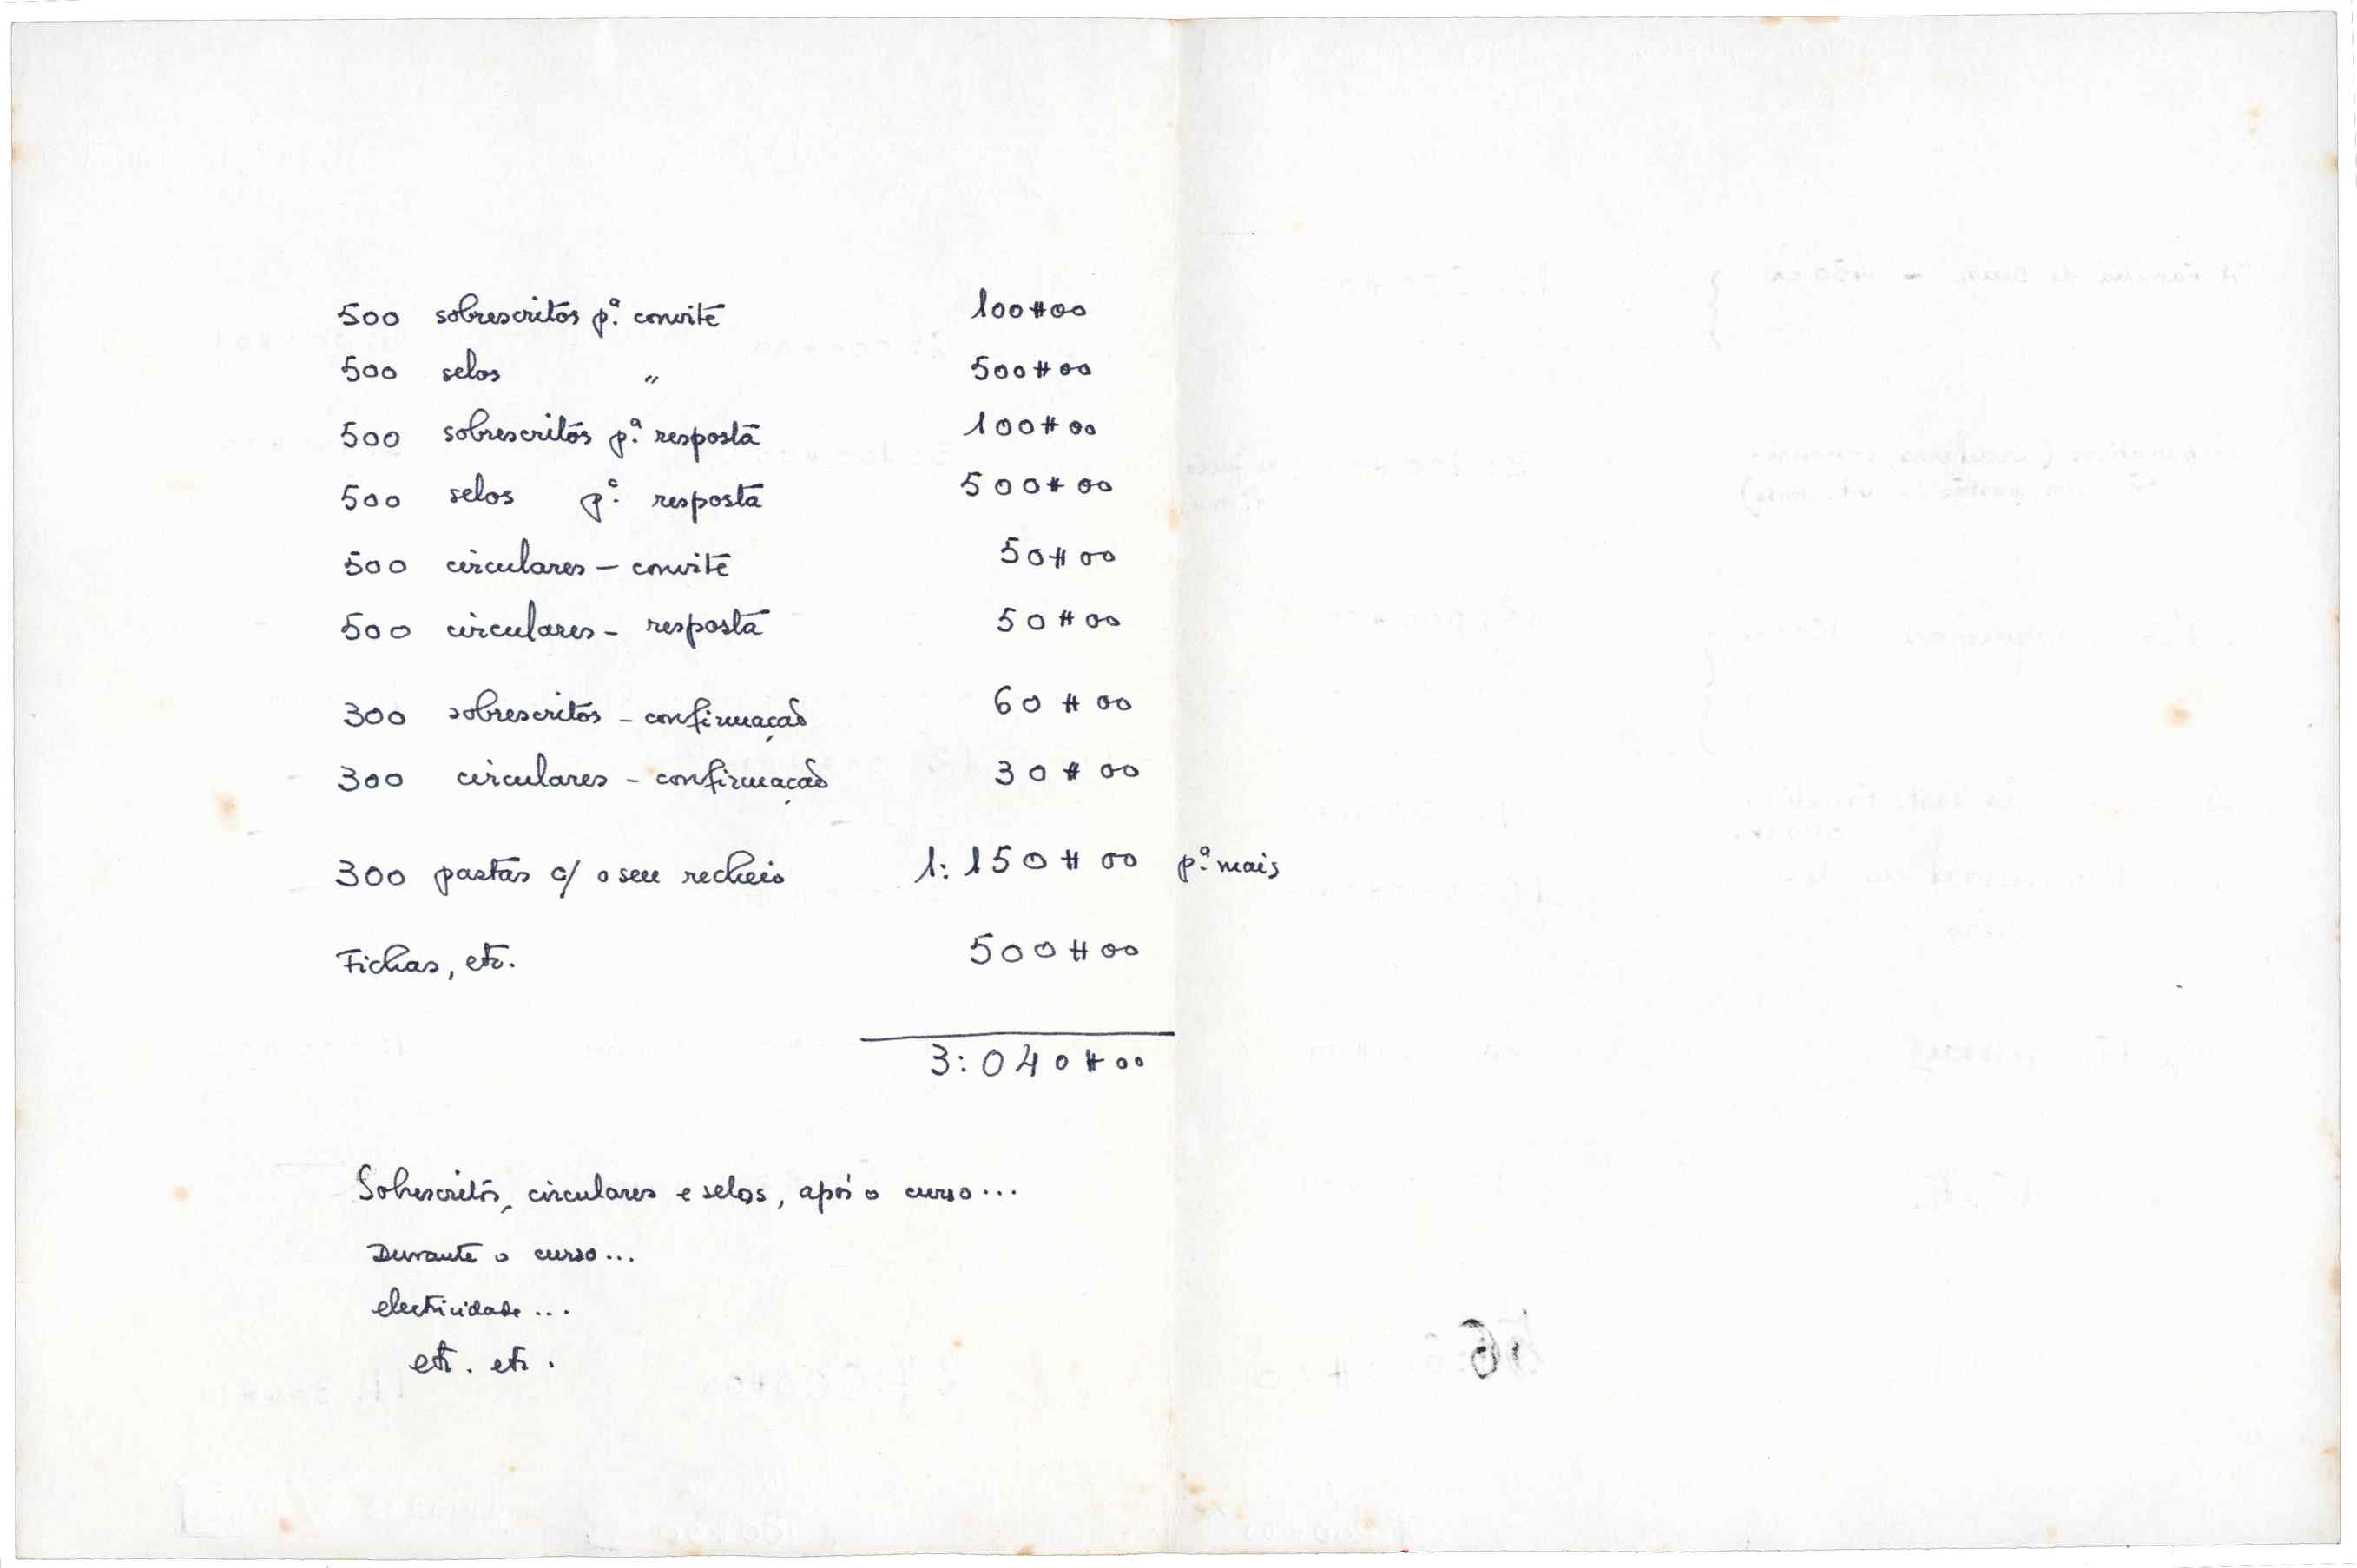 500 sobrescritos p.ª convite 100#00
500 selos " 500#00
500 sobrescritos p.ª resposta 100#00
500 selos p.ª resposta 500#00
500 circulares – convite 50#00
500 circulares – resposta 50#00
300 sobrescritos – confirmação 60#00
300 circulares – confirmação 30#00
300 pastas c/ o seu recheio 1:150#00 p.ª mais
Fichas, etc. 500#00
3:040#00
Sobescritos, circulares e selos, após o curso...
Durante o curso...
electricidade...
etc. etc.